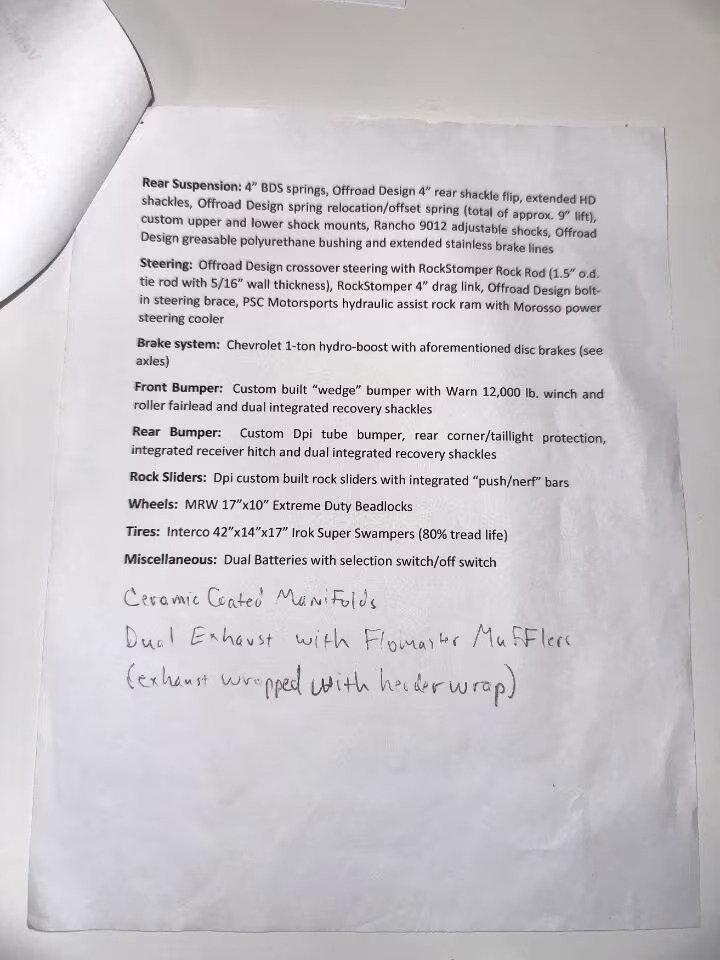 Rear Suspension: 4" BDS springs, Offroad Design 4" rear shackle flip, extended HD
shackles, Offroad Design spring relocation/offset spring (total of approx. 9" lift),
custom upper and lower shock mounts, Rancho 9012 adjustable shocks, Offroad
Design greasable polyurethane bushing and extended stainless brake lines
Steering: Offroad Design crossover steering with RockStomper Rock Rod (1.5" o.d.
tie rod with 5/16" wall thickness), RockStomper 4" drag link, Offroad Design bolt-
in steering brace, PSC Motorsports hydraulic assist rock ram with Morosso power
steering cooler
Brake system: Chevrolet 1-ton hydro-boost with aforementioned disc brakes (see
axles)
Front Bumper: Custom built "wedge" bumper with Warn 12,000 lb. winch and
roller fairlead and dual integrated recovery shackles
Rear Bumper: Custom Dpi tube bumper, rear corner/taillight protection,
integrated receiver hitch and dual integrated recovery shackles
Rock Sliders: Dpi custom built rock sliders with integrated "push/nerf" bars
Wheels: MRW 17"x10" Extreme Duty Beadlocks
Tires: Interco 42"x14"x17" Irok Super Swampers (80% tread life)
Miscellaneous: Dual Batteries with selection switch/off switch
Ceramic Coated Manifolds
Dual Exhaust with Flomaster Mufflers
(exhaust wrapped with header wrap)